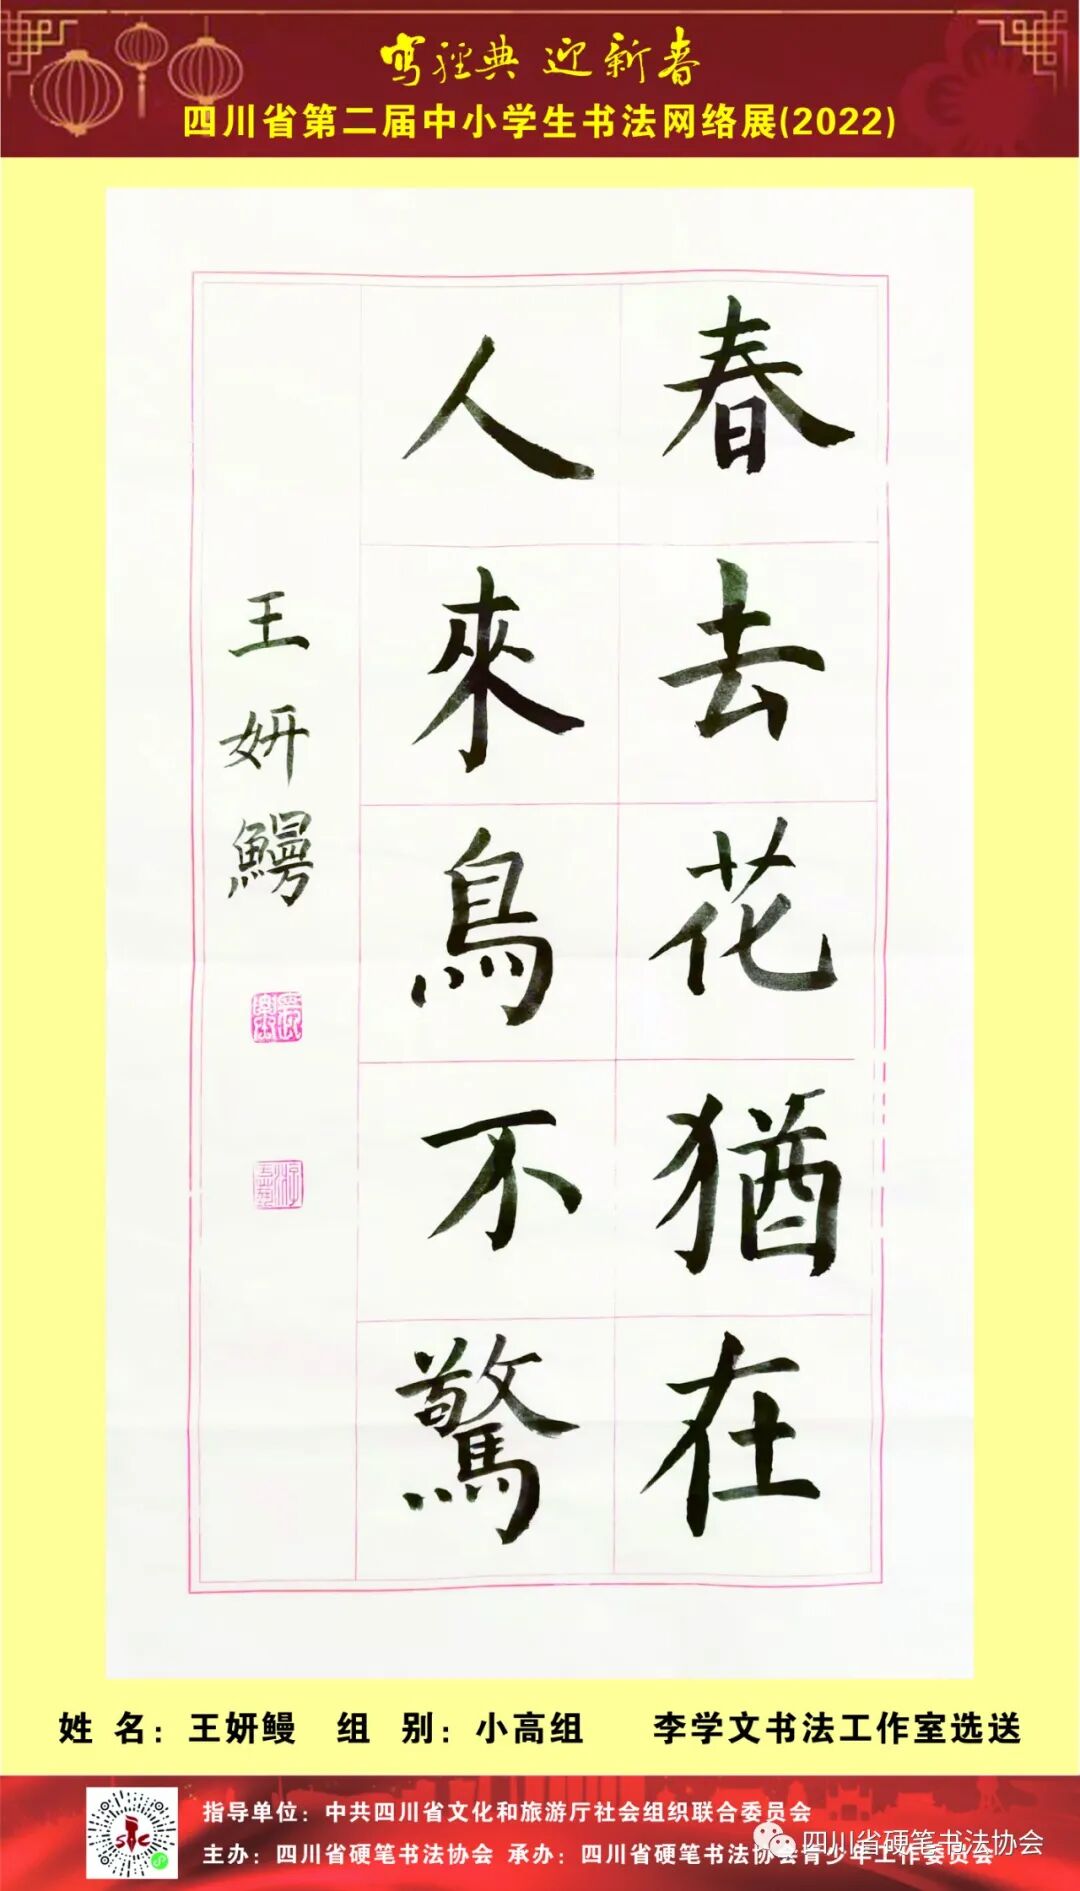 写经典 迎新春
四川省第二届中小学生书法网络展(2022)
春去花猶在
人來鳥不驚
王妍鰻
姓 名：王妍鳗 组 别：小高组 李学文书法工作室选送
指导单位：中共四川省文化和旅游厅社会组织联合委员会
主办：四川省硬笔书法协会 承办：四川省硬笔书法协会青少年工作委员会
四川省硬笔书法协会